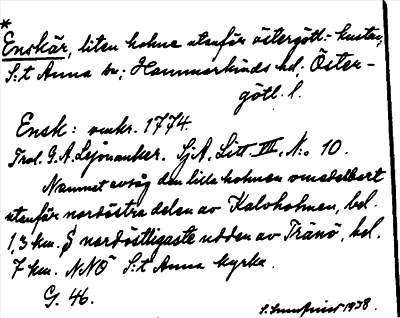 *
Enskär, liten holme utanför östergötl.-kusten,
S:t Anna sn; Hammarkinds hd; Öster-
götl. l.
Ensk: omkr. 1774.
Trol. G.A. Lejonanker. SjA, Litt. III, No 10.
Namnet avsåg den lilla holmen omedelbart
utanför nordöstra delen av Kaloholmen, bel.
1,3 km. S nordöstligaste udden av Tränö, bel.
7 km. NNÖ S:t Anna kyrka.
G. 46.
1938.